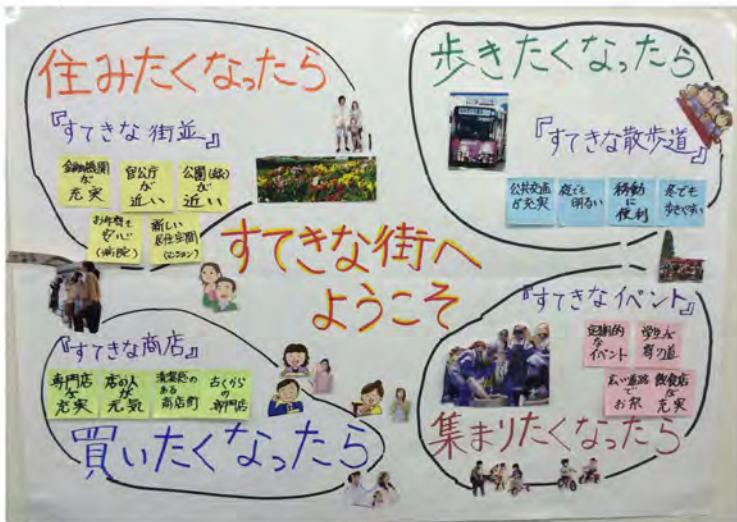 住みたくなったら
『すてきな街並』
金融機関
が
充実
官公庁
が
近い
公園(緑)
が
近い
お年寄も
安心
(病院)
新しい
居住空間
(マンション)
歩きたくなったら
『すてきな散歩道』
公共交通
が充実
夜でも
明るい
移動
に
便利
冬でも
歩きやすい
すてきな街へ
ようこそ
『すてきな商店』
専門店
が
充実
店の人
が
元気
清潔感の
ある
商店町
古くから
の
専門店
買いたくなったら
『すてきなイベント』
定期的
な
イベント
学生が
寄り道
広い道路
で
お祭
飲食店
が
充実
集まりたくなったら